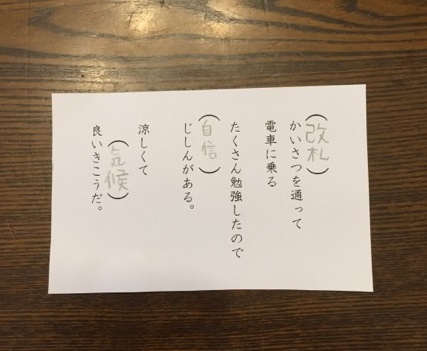 (改札)
かいさつを通って
電車に乗る
たくさん勉強したので
(自信)
じしんがある。
涼しくて
(気候)
良いきこうだ。